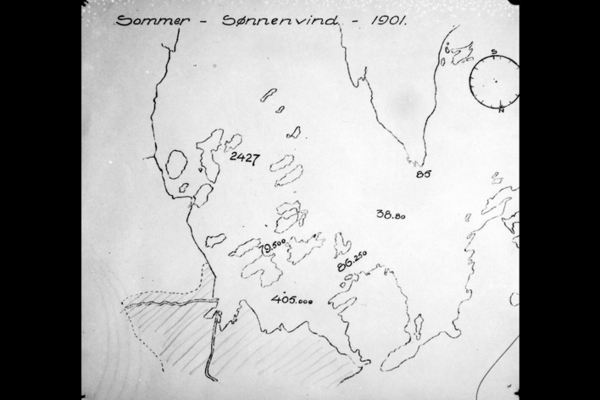 Sommer - Sønnenvind - 1901.
S
N
2427
85
38.80
79.500
86.250
405.000